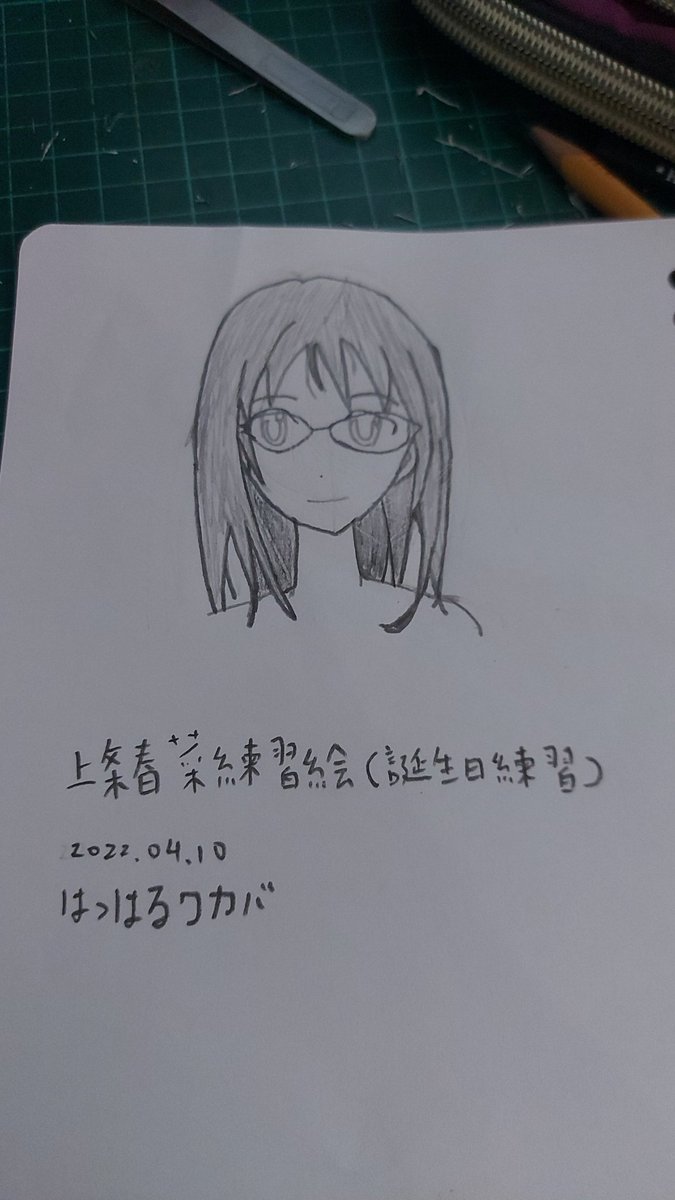 上条春菜練習絵(誕生日練習)
2022.04.10
はっはるワカバ